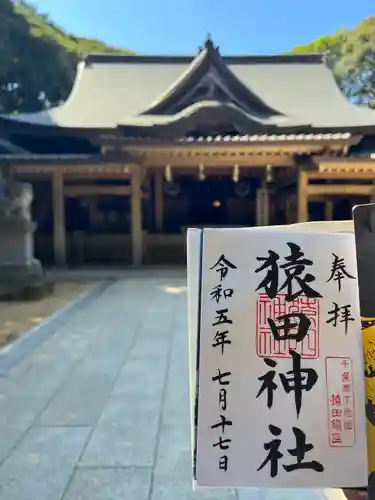 奉拝
猿田神社
令和五年七月十七日
千葉県下総
猿田鎮座